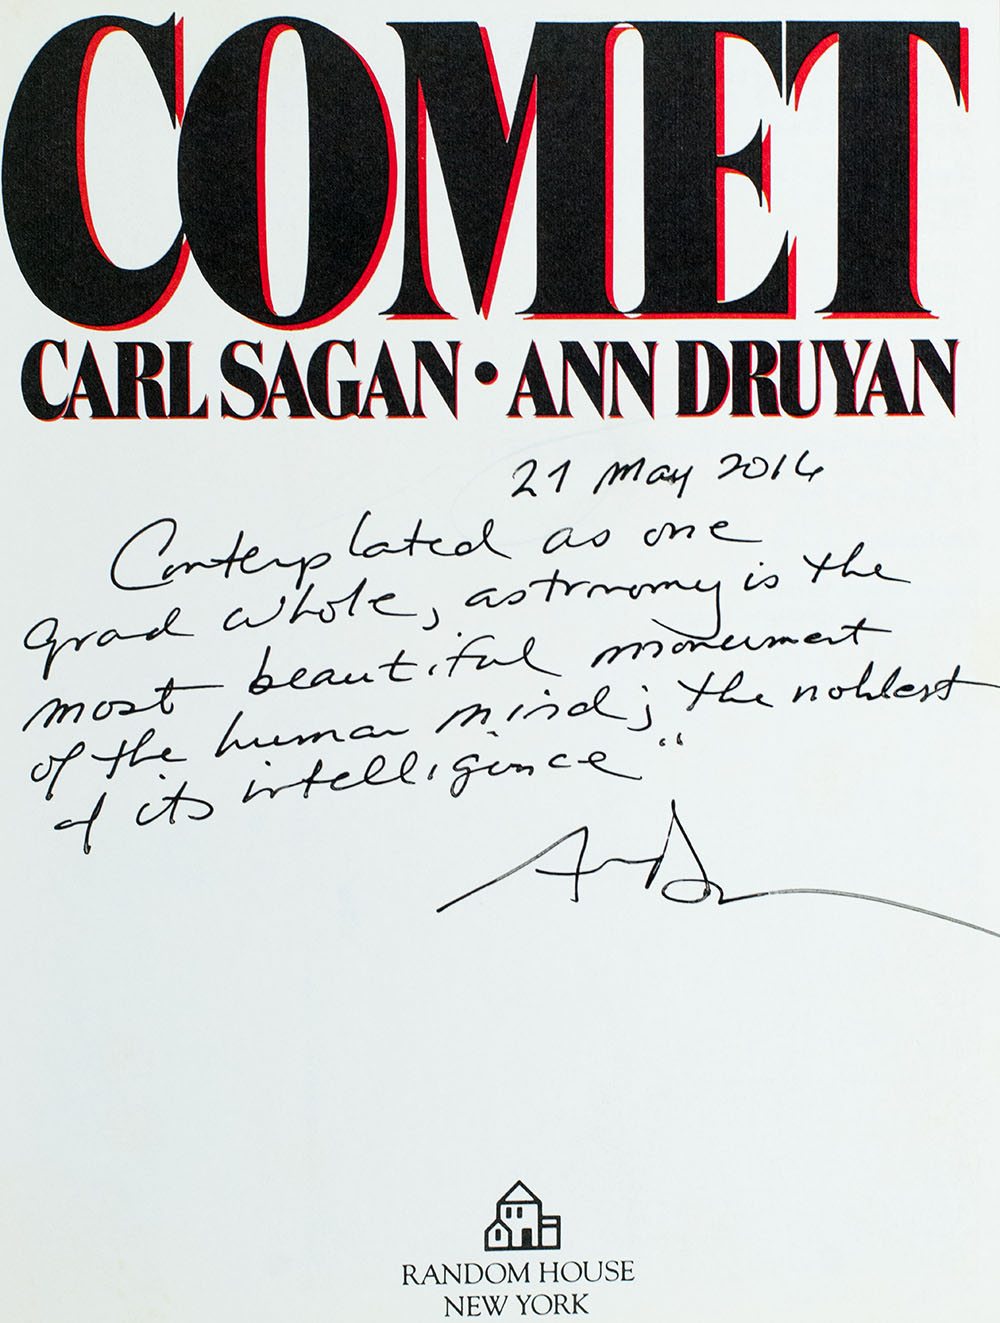 COMET
CARL SAGAN • ANN DRUYAN
21 May 2016
Contemplated as one
grand whole, astronomy is the
most beautiful monument
of the human mind; the noblest
of its intelligence"
Ann D
RANDOM HOUSE
NEW YORK